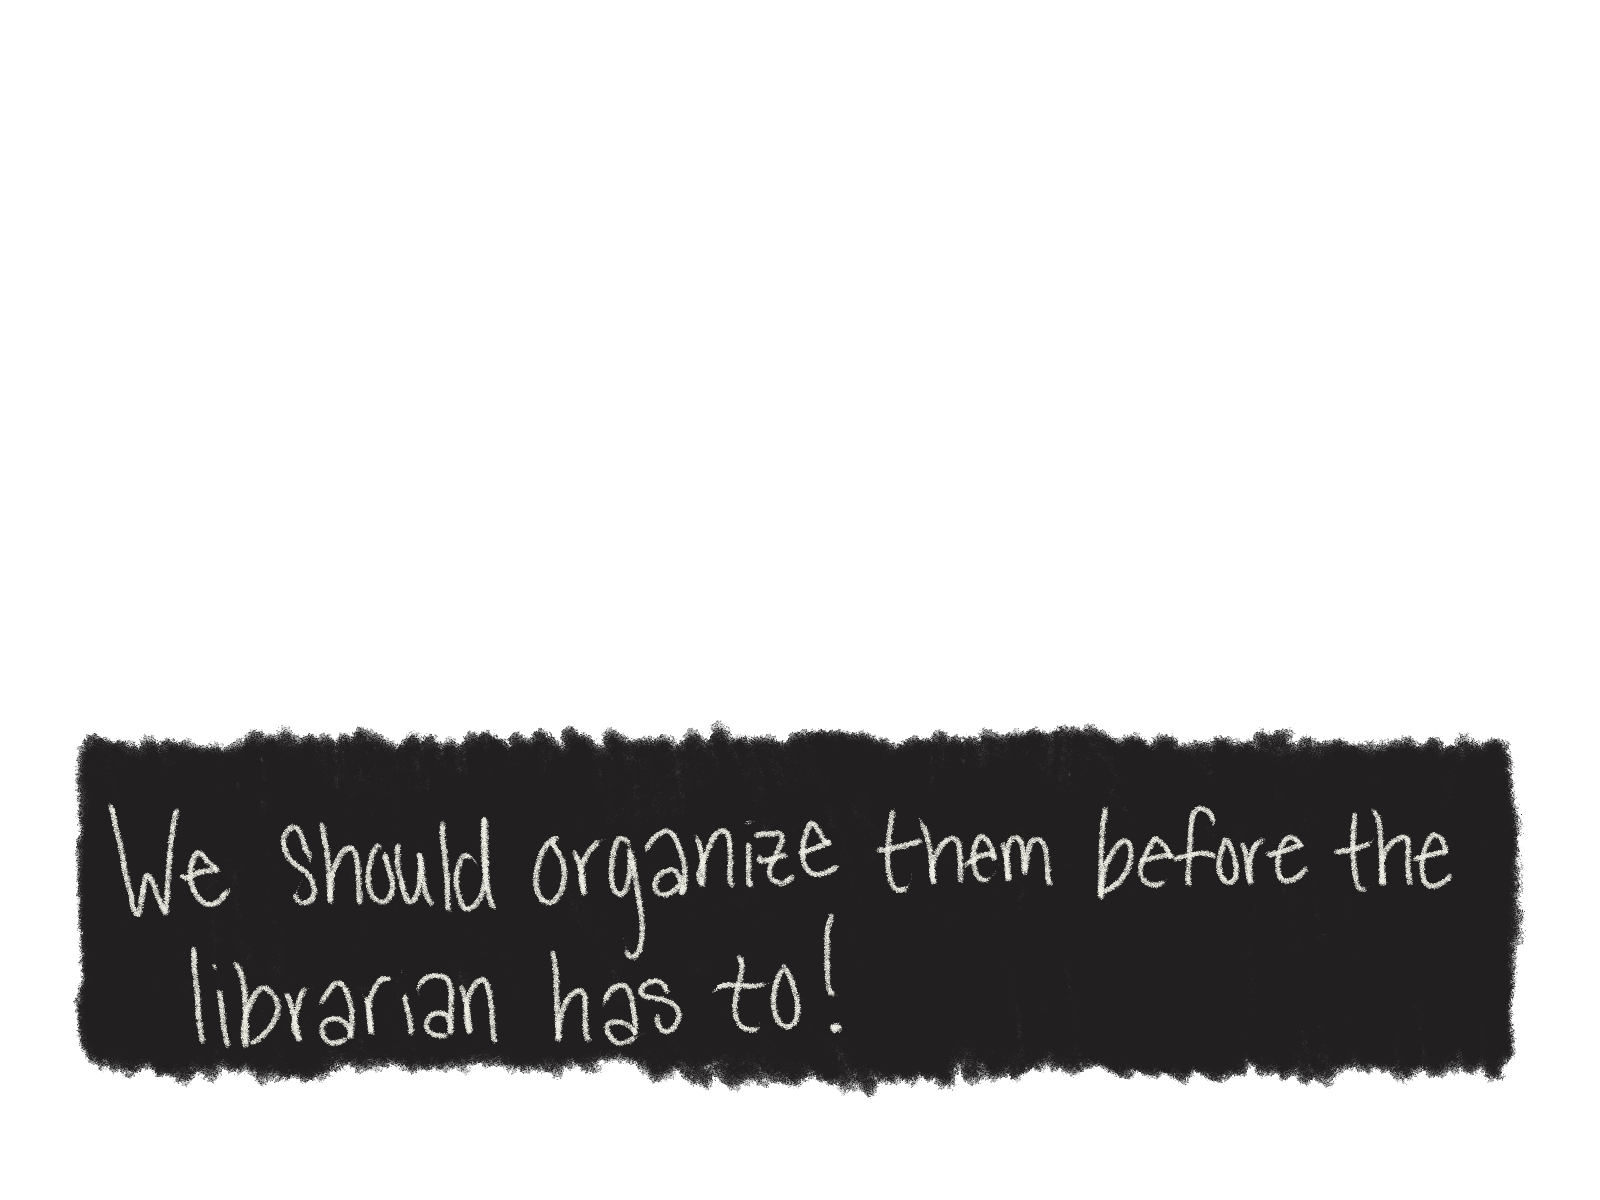 We should organize them before the
librarian has to!